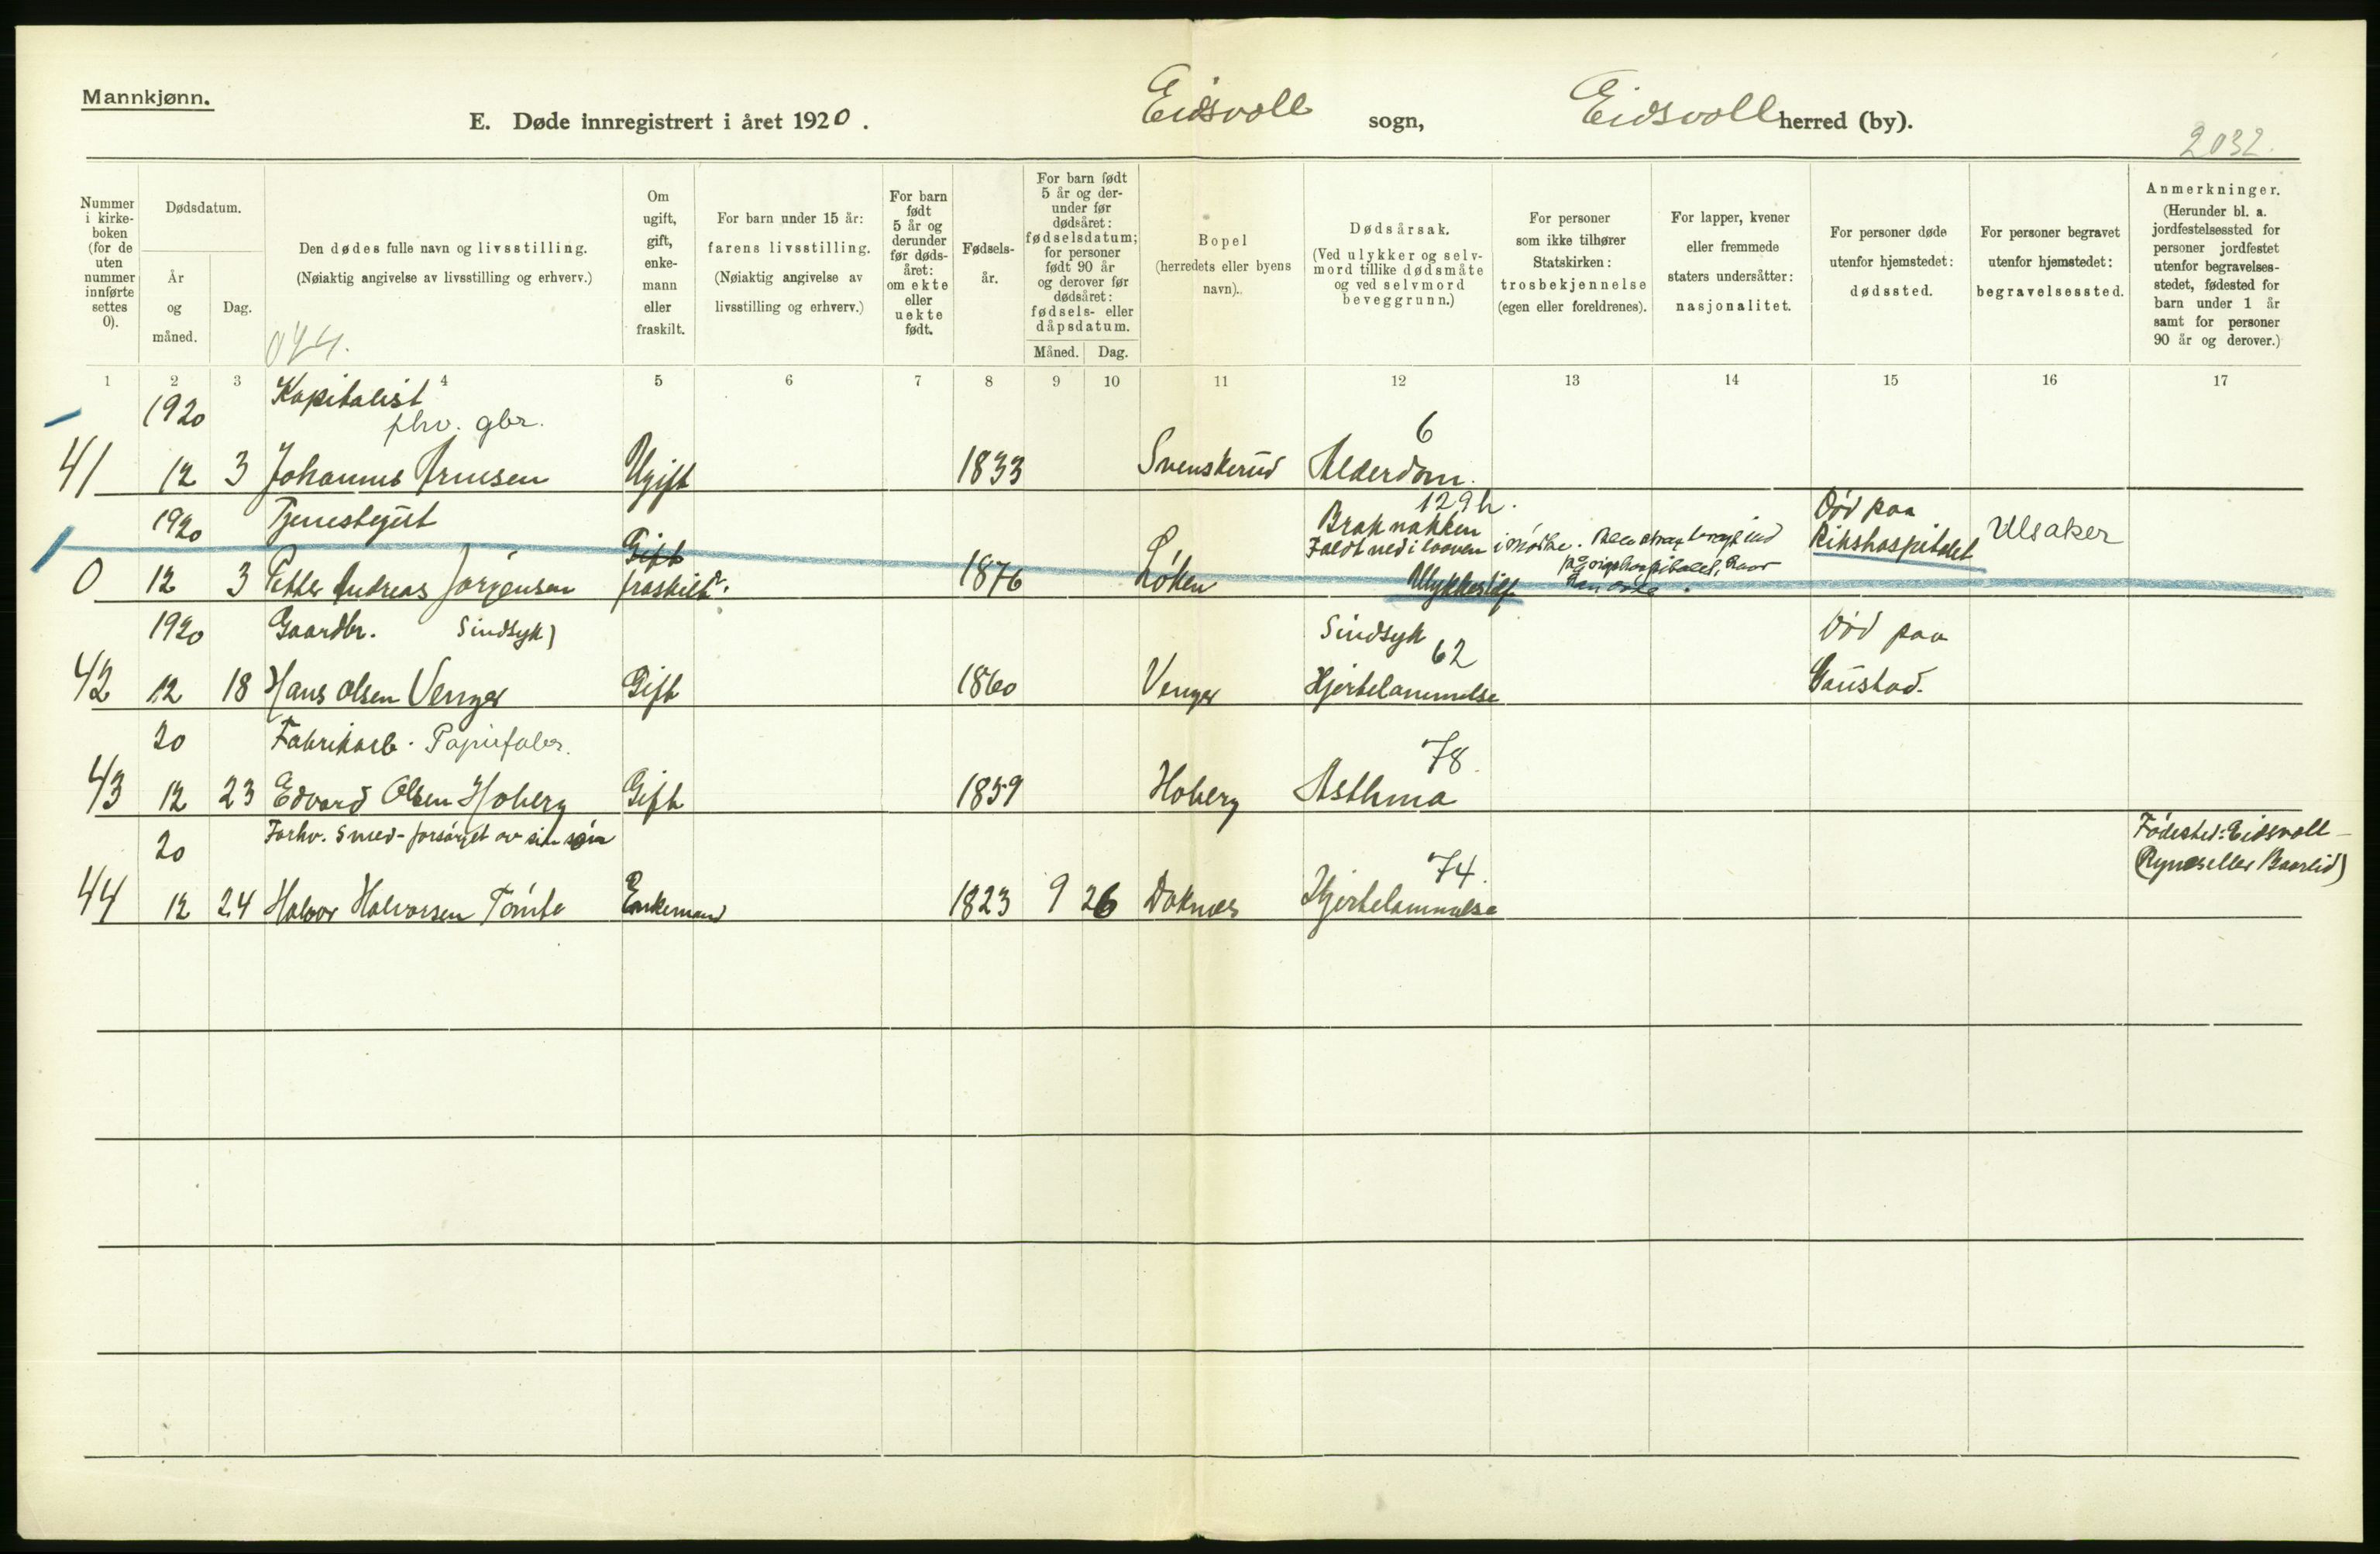 Mannkjønn.
E. Døde innregistrert i året 1920.
Eidsvoll sogn,
Eidsvoll herred (by).
2032.
Nummer i kirke-boken (for de uten nummer innførte settes 0).
Dødsdatum.
År og måned.
Dag.
Den dødes fulle navn og livsstilling.
(Nøiaktig angivelse av livsstilling og erhverv.)
Om ugift, gift, enke-mann eller fraskilt.
For barn under 15 år:
farens livsstilling.
(Nøiaktig angivelse av livsstilling og erhverv.)
For barn født 5 år og derunder før døds-året: om ekte eller uekte født.
Fødsels-år.
For barn født 5 år og der-under før dødsåret: fødselsdatum; for personer født 90 år og derover før dødsåret: fødsels- eller dåpsdatum.
Måned. Dag.
Bopel
(herredets eller byens navn).
Dødsårsak.
(Ved ulykker og selv-mord tillike dødsmåte og ved selvmord beveggrunn.)
For personer som ikke tilhører Statskirken: trosbekjennelse (egen eller foreldrenes).
For lapper, kvener eller fremmede staters undersåtter: nasjonalitet.
For personer døde utenfor hjemstedet: dødssted.
For personer begravet utenfor hjemstedet: begravelsessted.
Anmerkninger.
(Herunder bl. a. jordfestelsessted for personer jordfestet utenfor begravelses-stedet, fødested for barn under 1 år samt for personer 90 år og derover.)
1 2 3 4 5 6 7 8 9 10 11 12 13 14 15 16 17
1920 Kapitalist
fhv. gbr. 6
41 12 3 Johannes Arnesen Ugift 1833 Svenskerud Alderdom.
129 h.
1920 Tjenestegut Gift Brak nakken Død paa
Faldt ned i laaven i mørke. Blev strax bragt ind Rikshospitalet Ulsaker
0 12 3 Petter Andreas Jørgensen fraskilt 1876 Løken Ulykkestilf.
1920 Gaardbr. Sindsyk) Sindsyk 62 Død paa
42 12 18 Hans Olsen Venger Gift 1860 Venger Hjertelammelse Gaustad.
20 Fabrikarb. Papirfabr. 78.
43 12 23 Edvard Olsen Hoberg Gift 1859 Hoberg Asthma
20 Forhv. Smed - forsørget av sin søn 74. Fødested: Eidsvoll
44 12 24 Halvor Halvorsen Tømte Enkemand 1823 9 26 Doknes Hjertelammelse